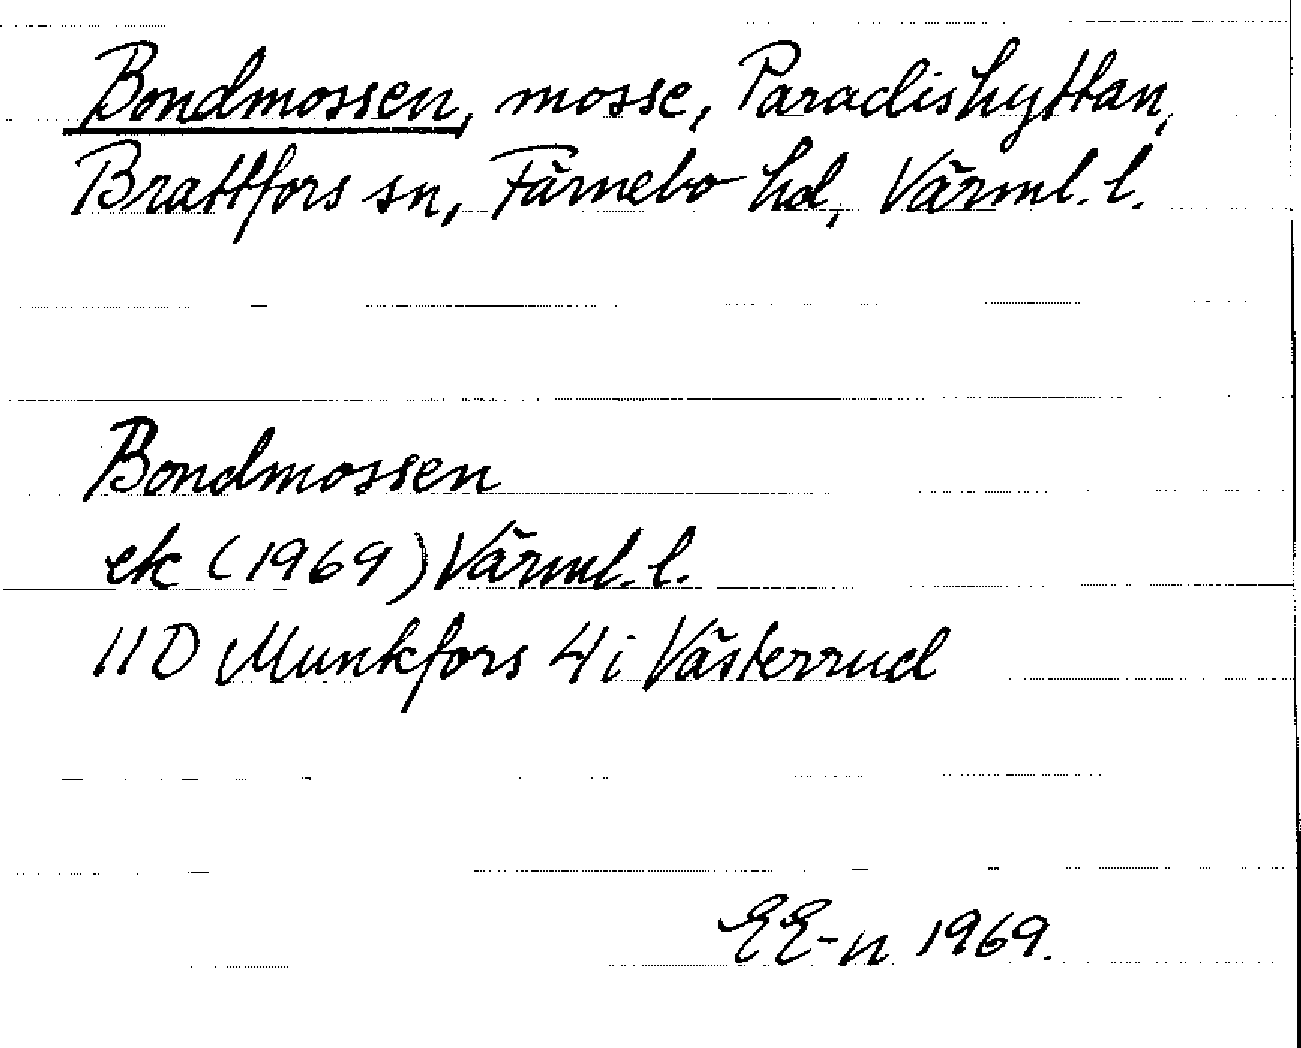 Bondmossen, mosse, Paradishyttan,
Brattfors sn, Färnebo hd, Värml. l.
Bondmossen
ek (1969) Värml. l.
11D Munkfors 4i Västerrud
EE-n 1969.